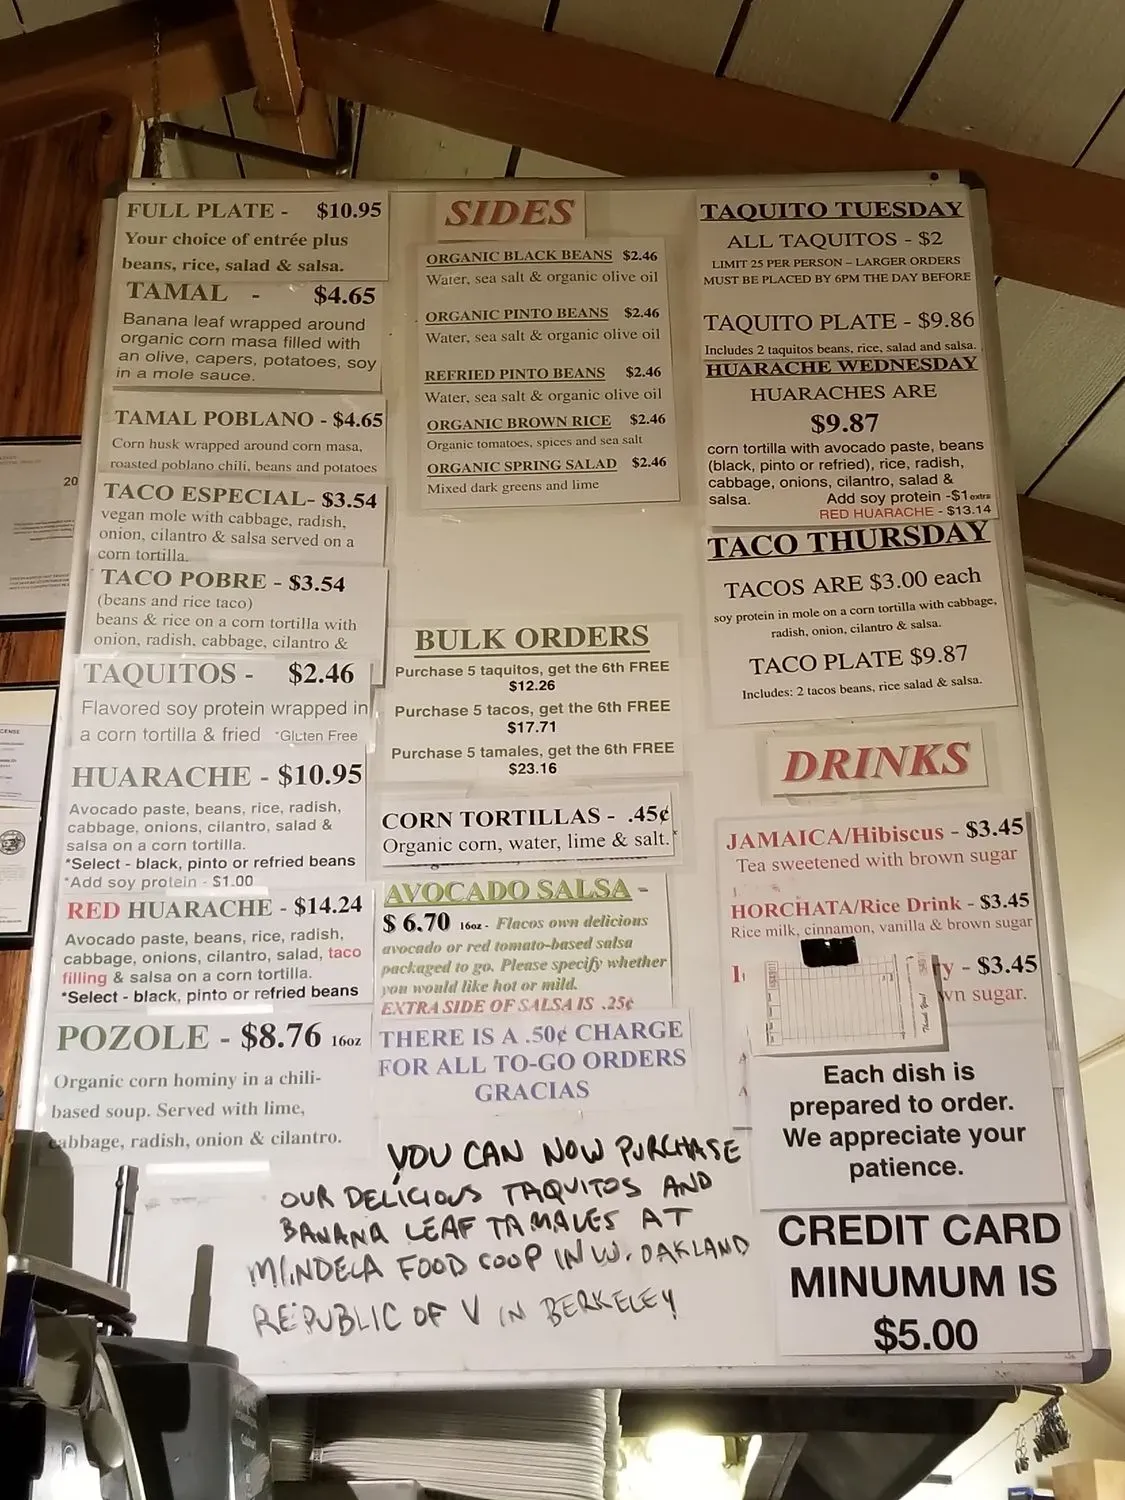 FULL PLATE - $10.95
Your choice of entrée plus
beans, rice, salad & salsa.
TAMAL - $4.65
Banana leaf wrapped around
organic corn masa filled with
an olive, capers, potatoes, soy
in a mole sauce.
TAMAL POBLANO - $4.65
Corn husk wrapped around corn masa,
roasted poblano chili, beans and potatoes
TACO ESPECIAL- $3.54
vegan mole with cabbage, radish,
onion, cilantro & salsa served on a
corn tortilla.
TACO POBRE - $3.54
(beans and rice taco)
beans & rice on a corn tortilla with
onion, radish, cabbage, cilantro &
TAQUITOS - $2.46
Flavored soy protein wrapped in
a corn tortilla & fried *Gluten Free
HUARACHE - $10.95
Avocado paste, beans, rice, radish,
cabbage, onions, cilantro, salad &
salsa on a corn tortilla.
*Select - black, pinto or refried beans
*Add soy protein - $1.00
RED HUARACHE - $14.24
Avocado paste, beans, rice, radish,
cabbage, onions, cilantro, salad, taco
filling & salsa on a corn tortilla.
*Select - black, pinto or refried beans
POZOLE - $8.76 16oz
Organic corn hominy in a chili-
based soup. Served with lime,
cabbage, radish, onion & cilantro.
SIDES
ORGANIC BLACK BEANS $2.46
Water, sea salt & organic olive oil
ORGANIC PINTO BEANS $2.46
Water, sea salt & organic olive oil
REFRIED PINTO BEANS $2.46
Water, sea salt & organic olive oil
ORGANIC BROWN RICE $2.46
Organic tomatoes, spices and sea salt
ORGANIC SPRING SALAD $2.46
Mixed dark greens and lime
BULK ORDERS
Purchase 5 taquitos, get the 6th FREE
$12.26
Purchase 5 tacos, get the 6th FREE
$17.71
Purchase 5 tamales, get the 6th FREE
$23.16
CORN TORTILLAS - .45¢
Organic corn, water, lime & salt.*
AVOCADO SALSA -
$ 6.70 16oz - Flacos own delicious
avocado or red tomato-based salsa
packaged to go. Please specify whether
you would like hot or mild.
EXTRA SIDE OF SALSA IS .25¢
THERE IS A .50¢ CHARGE
FOR ALL TO-GO ORDERS
GRACIAS
YOU CAN NOW PURCHASE
OUR DELICIOUS TAQUITOS AND
BANANA LEAF TAMALES AT
MINDELA FOOD COOP IN W. OAKLAND
REPUBLIC OF V IN BERKELEY
TAQUITO TUESDAY
ALL TAQUITOS - $2
LIMIT 25 PER PERSON – LARGER ORDERS
MUST BE PLACED BY 6PM THE DAY BEFORE
TAQUITO PLATE - $9.86
Includes 2 taquitos beans, rice, salad and salsa.
HUARACHE WEDNESDAY
HUARACHES ARE
$9.87
corn tortilla with avocado paste, beans
(black, pinto or refried), rice, radish,
cabbage, onions, cilantro, salad &
salsa. Add soy protein -$1 extra
RED HUARACHE - $13.14
TACO THURSDAY
TACOS ARE $3.00 each
soy protein in mole on a corn tortilla with cabbage,
radish, onion, cilantro & salsa.
TACO PLATE $9.87
Includes: 2 tacos beans, rice salad & salsa.
DRINKS
JAMAICA/Hibiscus - $3.45
Tea sweetened with brown sugar
HORCHATA/Rice Drink - $3.45
Rice milk, cinnamon, vanilla & brown sugar
y - $3.45
wn sugar.
Thank You!
Each dish is
prepared to order.
We appreciate your
patience.
CREDIT CARD
MINUMUM IS
$5.00
20